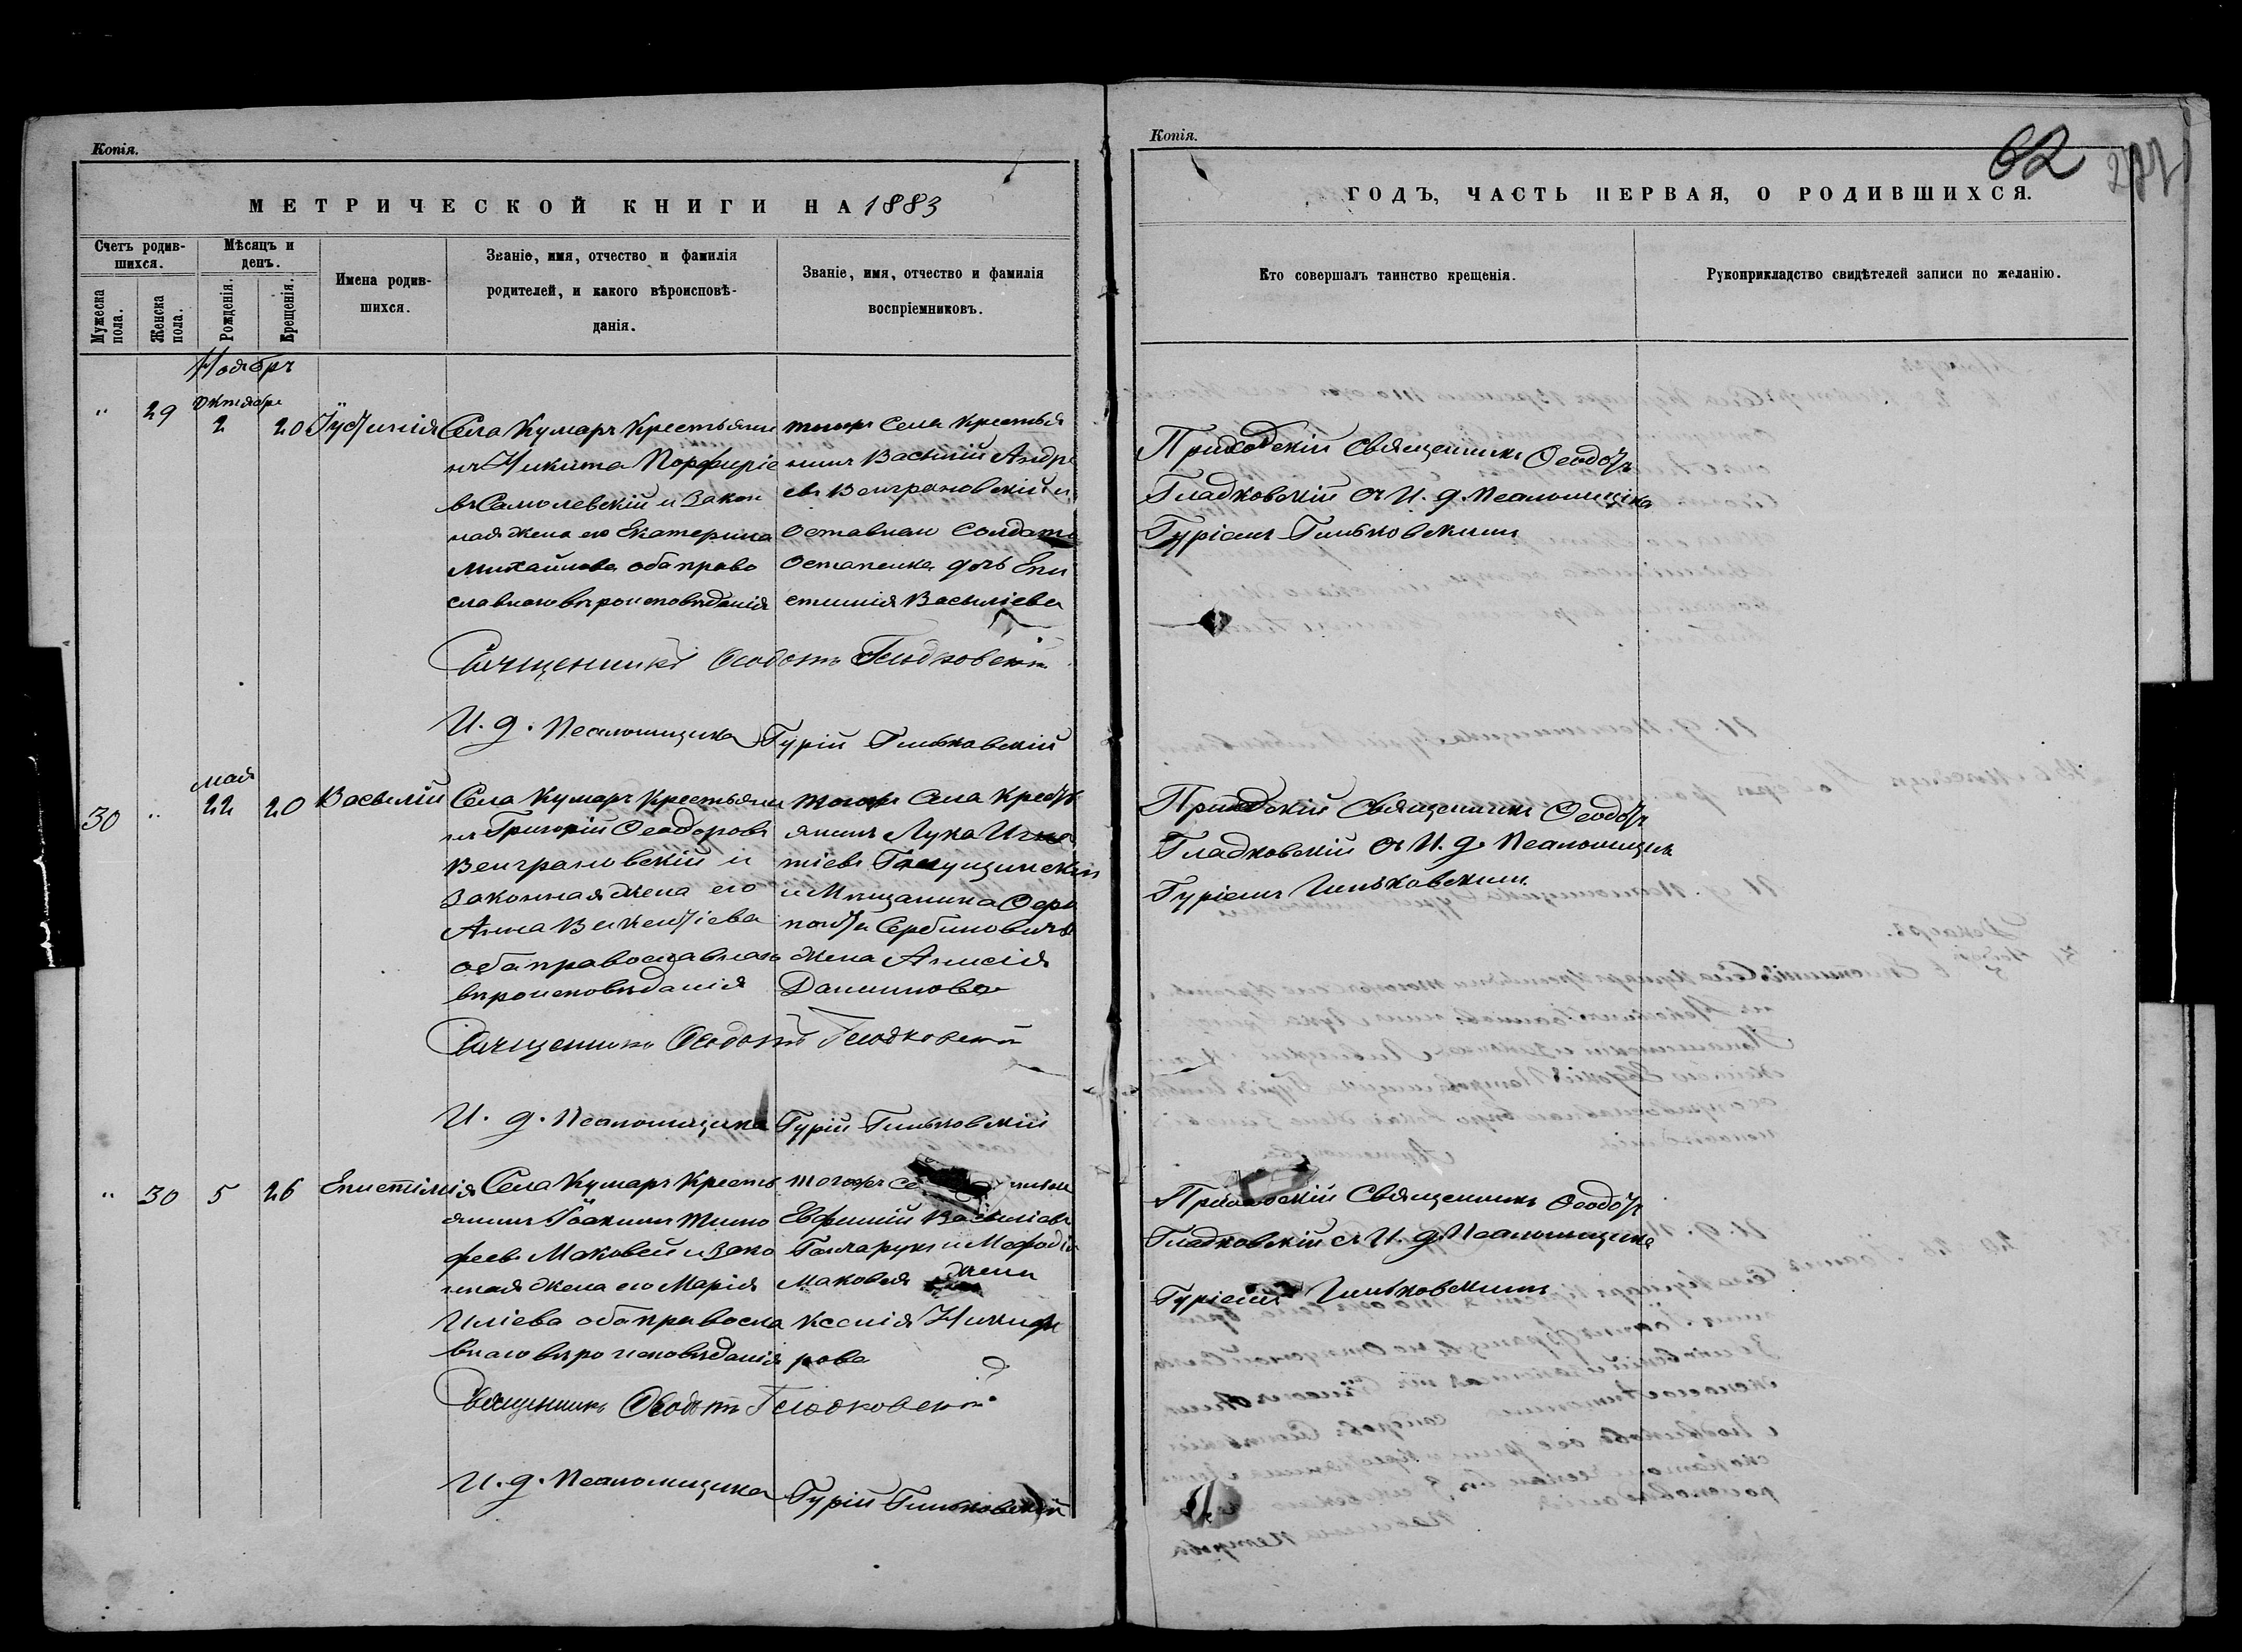 Копія.
МЕТРИЧЕСКОЙ КНИГИ НА 1883
Счетъ родив-
шихся.
Мѣсяцъ и
день.
Мужеска
пола.
Женска
пола.
Рожденія.
Крещенія.
Имена родив-
шихся.
Званіе, имя, отчество и фамилія
родителей, и какого вѣроисповѣ-
данія.
Званіе, имя, отчество и фамилія
воспріемниковъ.
Ноябрь
" 29 Октября
2 20 Іустинія
Села Кумаръ Крестьяни
нъ Никита Порфиріе
въ Самолевскій и закон
ная жена его Екатерина
Михайлова оба право
славнаго вѣроисповѣданія
тогожъ Села Крестья
нинъ Василій Андре
евъ Венграновскій и
Оставнаго Солдата
Остапенка дочь Епи
стимія Васильева
Священникъ Ѳеодотъ Гладковскій
И. д. Псаломщика Гурій Гиньковскій
30 " мая
22 20 Василій
Села Кумаръ Крестьяни
нъ Григорій Ѳеодоровъ
Венграновскій и
законная жена его
Анна Викентіева
оба православнаго
вѣроисповѣданія
тогожъ Села Крест
янинъ Лука Игна
тіевъ
и Мѣщанина Ѳера
понта Сербиновича
жена Анисія
Данилова
Священникъ Ѳеодотъ Гладковскій
И. д. Псаломщика Гурій Гиньковскій
" 30 5 26 Епистимія
Села Кумаръ Кресть
янинъ Іоакимъ Тимо
феевъ Маковей и зако
нная жена его Марія
Иліева оба правосла
внаго вѣроисповѣданія
тогожъ Се
Евфимій Васильевъ
Гончарукъ и Мефодія
Маковея жена
Ксенія Никифо
рова
Священникъ Ѳеодотъ Гладковскій
И. д. Псаломщика Гурій Гиньковскій
Копія.
62
ГОДЪ, ЧАСТЬ ПЕРВАЯ, О РОДИВШИХСЯ.
Кто совершалъ таинство крещенія.
Рукоприкладство свидѣтелей записи по желанію.
Приходскій Священникъ Ѳеодотъ
Гладковскій съ И. д. Псаломщика
Гуріемъ Гиньковскимъ
Приходскій Священникъ Ѳеодотъ
Гладковскій съ И. д. Псаломщика
Гуріемъ Гиньковскимъ
Приходскій Священникъ Ѳеодотъ
Гладковскій съ И. д. Псаломщика
Гуріемъ Гиньковскимъ